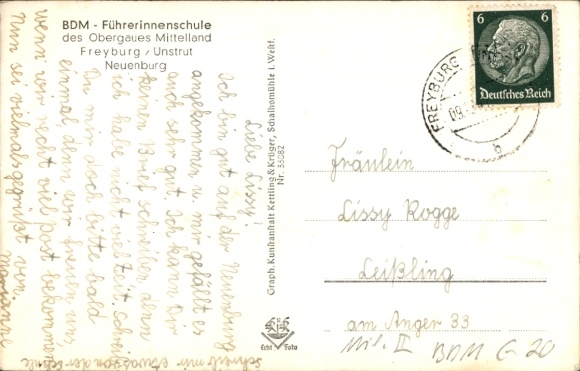 BDM - Führerinnenschule
des Obergaues Mittelland
Freyburg / Unstrut
Neuenburg
Liebe Lissy!
Ich bin gut auf der Neuenburg
angekommen u. mir gefällt es
auch sehr gut. Ich kann Dir
keinen Brief schreiben, denn
ich habe nicht viel Zeit. Schreib
Du mir doch bitte bald
einmal denn wir freuen uns,
wenn wir recht viel Post bekommen.
Nun sei vielmals gegrüßt von
Marianne
Schreib mir etwas von der Schule
Graph. Kunstanstalt Kettling & Krüger, Schalksmühle i. Westf.
Nr. 33082
Echt Foto
6 6
Deutsches Reich
FREYBURG
09.
b
Fräulein
Lissy Rogge
Leißling
am Anger 33
Mil. II BDM G-20